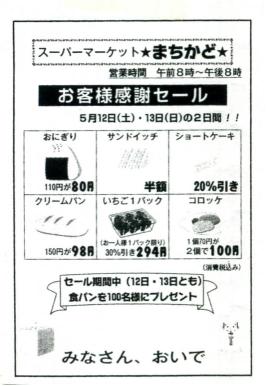 スーパーマーケット★まちかど★
営業時間 午前8時~午後8時
お客様感謝セール
5月12日(土)・13日(日)の2日間!!
おにぎり
110円が80円
サンドイッチ
半額
ショートケーキ
20%引き
クリームパン
150円が98円
いちご1パック
(お一人様1パック限り)
30%引き294円
コロッケ
1個70円が
2個で100円
(消費税込み)
セール期間中(12日・13日とも)
食パンを100名様にプレゼント
みなさん、おいで